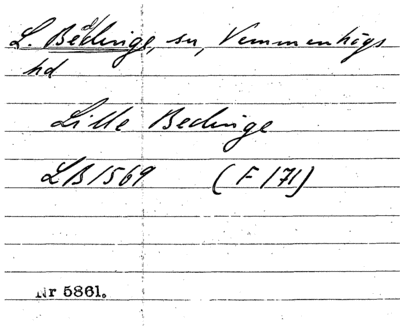 L. Beddinge, sn, Vemmenhögs
hd
Lille Bedinge
LB 1569 (F 171)
Nr 5861.